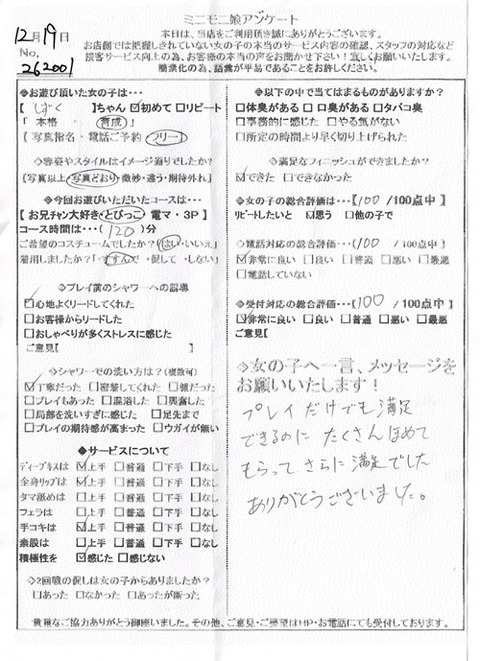 ミニモニ娘アンケート
12月19日
No,
262001
本日は、当店をご利用頂き誠にありがとうございます。
お店側では把握しきれていない女の子の本当のサービス内容の確認、スタッフの対応など
接客サービス向上の為、お客様の本当の声をお聞かせ下さい！宜しくお願いいたします。
簡素化の為、語彙が平易であることをお許しください。
◆お遊び頂いた女の子は…
【しずく 】ちゃん ☑初めて □リピート
「 本格 ・ 育成 」
【 写真指名・電話ご予約 フリー 】
◇容姿やスタイルはイメージ通りでしたか?
(写真以上・写真どおり・微妙・違う・期待外れ)
◆今回お遊びいただいたコースは…
【 お兄チャン大好き・とびっこ 電マ・3P 】
コース時間は…( 120 )分
ご希望のコスチュームでしたか?(はい・いいえ)
着用しましたか?(すすんで ・促して ・しない)
◇プレイ前のシャワーへの誘導
☑心地よくリードしてくれた
□お客様からリードした
□おしゃべりが多くストレスに感じた
ご意見[ ]
◇シャワーでの洗い方は?(複数可)
☑丁寧だった □密着してくれた □雑だった
□プレイもあった □混浴した □興奮した
□局部を洗いすぎに感じた □足先まで
□プレイの期待感が高まった □ウガイが無い
◆サービスについて
ディープキスは ☑上手 □普通 □下手 □なし
全身リップは ☑上手 □普通 □下手 □なし
タマ舐めは □上手 □普通 □下手 □なし
フェラは □上手 □普通 □下手 □なし
手コキは ☑上手 □普通 □下手 □なし
素股は □上手 □普通 □下手 □なし
積極性を ☑感じた □感じない
◇2回戦の促しは女の子からありましたか?
□あった □なかった □あったが断った
◆以下の中で当てはまるものがありますか?
□体臭がある □口臭がある □タバコ臭
□事務的に感じた □やる気がない
□所定の時間より早く切り上げられた
◇満足なフィニッシュができましたか?
☑できた □できなかった
◆女の子の総合評価は…【 100 /100点中】
リピートしたいと ☑思う □他の子で
◇電話対応の総合評価…(100 /100点中]
☑非常に良い □良い □普通 □悪い □最悪
□電話していない
◆受付対応の総合評価…(100 /100点中】
☑非常に良い □良い □普通 □悪い □最悪
ご意見[
◇女の子へ一言、メッセージを
お願いいたします！
プレイだけでも満足
できるのに たくさんほめて
もらって さらに満足でした
ありがとうございました。
貴重なご協力ありがとう御座いました。その他、ご意見・ご要望はHP・お電話にても受付しております。